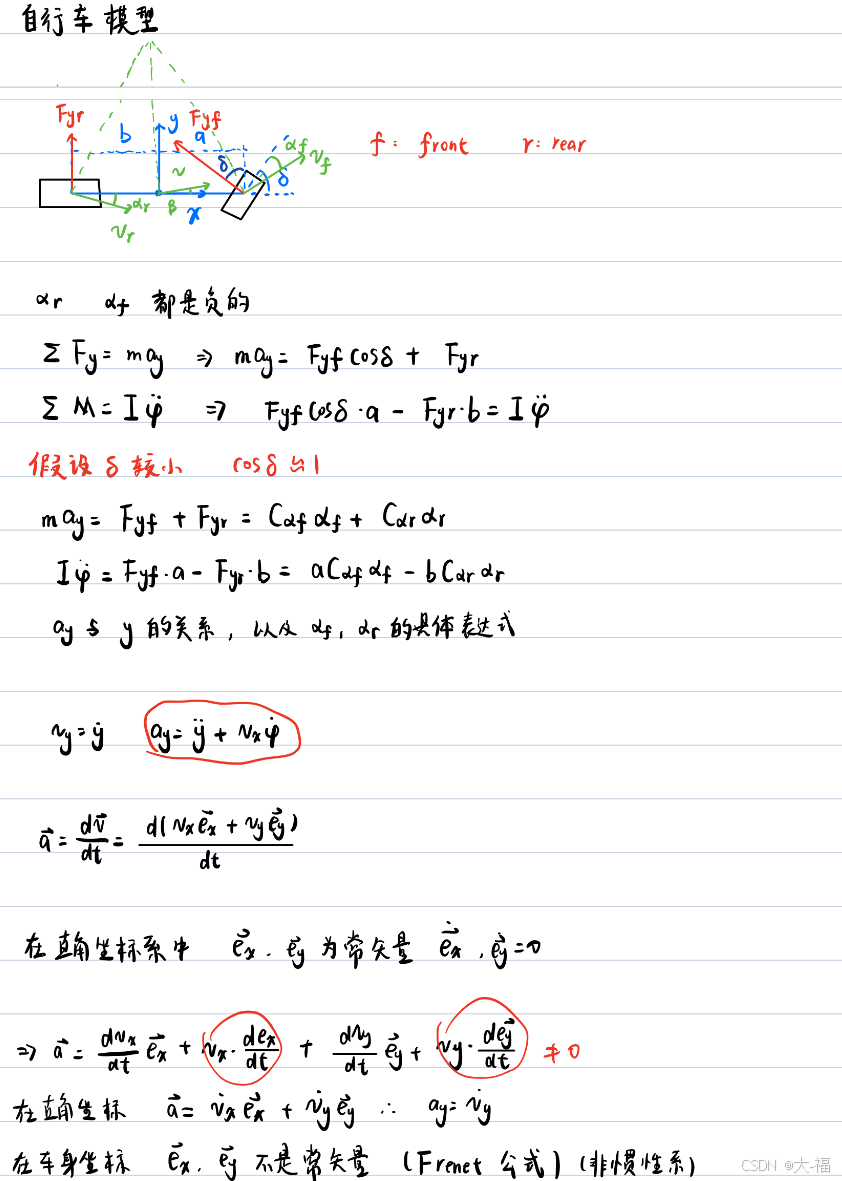 自行车模型
Fyr b y Fyf a αf vf
f: front r: rear
δ v δ
αr β x
vr
αr αf 都是负的
Σ Fy = may ⇒ may = Fyf cosδ + Fyr
Σ M = I φ̈ ⇒ Fyf cosδ · a − Fyr · b = I φ̈
假设 δ 较小 cosδ ≈ 1
may = Fyf + Fyr = Cαf αf + Cαr αr
I φ̈ = Fyf · a − Fyr · b = a Cαf αf − b Cαr αr
ay 与 y 的关系, 以及 αf, αr 的具体表达式
vy = ẏ ay = ÿ + vx φ̇
a⃗ = dv⃗/dt = d(vx e⃗x + vy e⃗y)/dt
在直角坐标系中 e⃗x . e⃗y 为常矢量 ė⃗x , ė⃗y = 0
⇒ a⃗ = dvx/dt e⃗x + vx · dex/dt + dvy/dt e⃗y + vy · de⃗y/dt ≠ 0
在直角坐标 a⃗ = v̇x e⃗x + v̇y e⃗y ∴ ay = v̇y
在车身坐标 e⃗x . e⃗y 不是常矢量 (Frenet 公式) (非惯性系)
CSDN @大-福